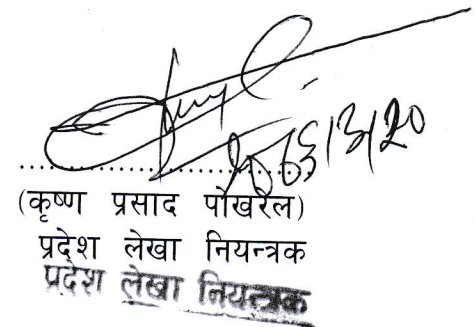 (कृष्ण प्रसाद पोखरेल)
प्रदेश लेखा नियन्त्रक
प्रदेश लेखा नियन्त्रक